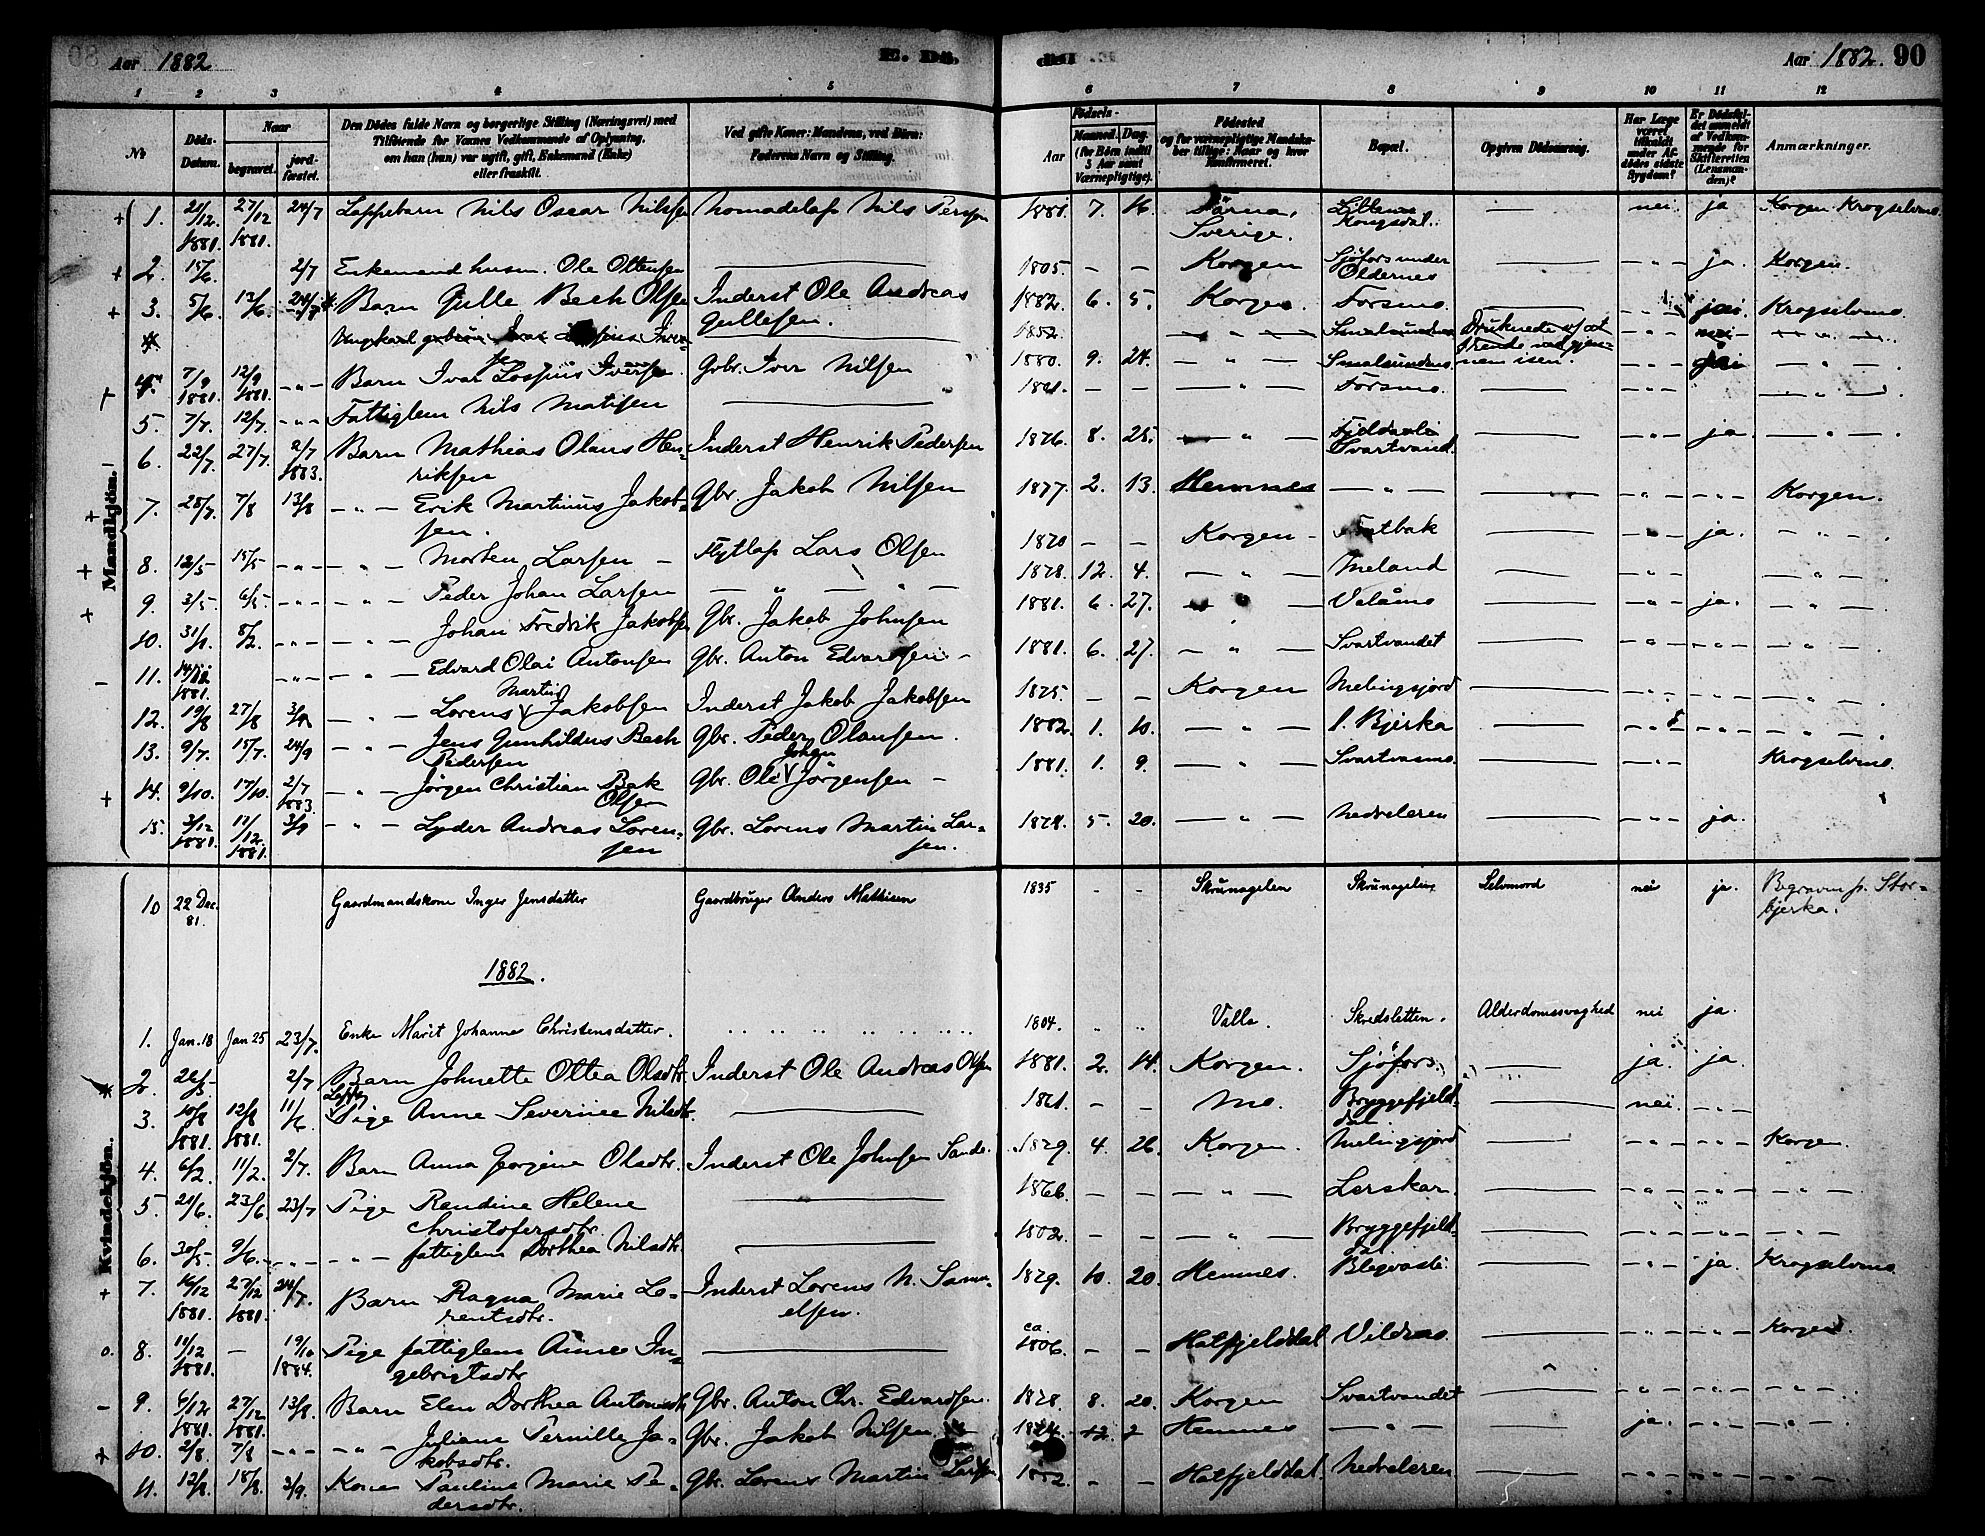 Aar 1882. E. Dö. Aar 1882. 90
1 2 3 4 5 6 7 8 9 10 11 12
No
Döds-Datum.
Naar
begravet.
jord-fæstet.
Den Dödes fulde Navn og borgerlige Stilling (Næringsvei) med
Tilföiende for Voxnes Vedkommende af Oplysning,
om han (hun) var ugift, gift, Enkemand (Enke)
eller fraskilt.
Ved gifte Koner: Mandens, ved Börn:
Faderens Navn og Stilling.
Födsels-
Aar
Maaned. Dag.
(for Börn indtil
5 Aar samt
Værnepligtige).
Födested
og for værnepligtige Mandskaber tillige: Naar og hvor
konfirmeret.
Bopæl.
Opgiven Dödsaarsag.
Har Læge
været
tilkaldt
under Afdödes sidste
Sygdom?
Er Dödsfaldet anmeldt
af Vedkommende for
Skifteretten
(Lensmanden)?
Anmærkninger.
Mandkjön.
1. 21/12 1881. 27/12 1881. 24/7 Lappebarn Nils Oscar Nilsen Nomadelap Nils Persen 1881. 7. 16. Tärna, Sverige. Kongsdal. — nei ja Korgen Krogselvmo.
2. 15/6 2/7 Enkemand husm. Ole Ottensen — 1805. - - Korgen Sjöfors under Oldernes — - " - ja. Korgen.
3. 5/6 13/6 24/7 Barn Gulle Bech Olsen Inderst Ole Andreas Gullesen. 1882. 6. 5. Korgen. Forsmo. — - " - Krogselvmo.
Iversen — 1852. - " - Smalsundmo Druknede
4. 7/9 1881. 12/9 1881. - " - Barn Ivar Losius Iversen. Gbr. Iver Nilsen 1880. 9. 24. - " - Smalsundmo nem isen - " -
5. 7/7. 12/7. - " - Fattiglem Nils Matisen — 1821. - - - " - Forsmo. — - " -
6. 22/7. 27/7. 2/7 1883. Barn Mathias Olaus Henriksen Inderst Henrik Pedersen 1876. 8. 25. - " - Svartvand. — - " - ja. - " -
7. 28/7. 7/8 13/8 - " - Erik Martinus Jakobsen. Gbr. Jakob Nilsen 1877. 2. 13. Hemnes - " - — - " - - " - Korgen.
8. 12/5 15/5 - " - - " - Morten Larsen - Flytlap Lars Olsen 1870 - - Korgen - — - " - ja. - " -
9. 3/5. 6/5. - " - - " - Peder Johan Larsen - " - 1878. 12. 4. - " - Meland — - " - - " - - " -
10. 31/1. 8/2. - " - - " - Johan Fredrik Jakobsen Gbr. Jakob Johnsen 1881. 6. 27. - " - Valåmo — - " - ja. - " -
11. 1881. - " - - " - Edvard Olai Antonsen Gbr. Anton Edvardsen - 1881. 6. 27. - " - Svartvandet — - " - - " - - " -
12. 19/8 27/8 - " - Lorens Martin Jakobsen Inderst Jakob Jakobsen 1875. - - Korgen Melingsjord — - " - - " - - " -
13. 9/7. 15/7. 24/9 - " - Jens Gunhildus Bech Pedersen Gbr. Peder Olausen. 1882. 1. 10. - " - l. Bjerka — - " - - " - - " -
14. 9/10. 17/10. 2/7 1883. - " - Jörgen Christian Bek Olsen Gbr. Ole Johan Jörgensen - 1881. 1. 9. - " - Svartvasmo — - " - Krogselvmo.
15. 3/12 1881. 11/12 1881. 3/9 - " - Lyder Andreas Lorensen Gbr. Lorens Martin Larsen. 1874. 5. 20. - " - Nedreleren — - " - ja. - " -
Kvindekjön.
10 22 Dec. 81. Gaardmandskone Inger Jensdatter Gaardbruger Anders Mathisen 1835 - - Skrunagelen Skrunagelen Selvmord nei ja. Begraven p. Storbjerka.
1882.
1. Jan. 18 Jan 25 23/7. Enke Marit Johanne Christensdatter. 1804. " " Valla. Skredsletten. Alderdomssvaghed nei ja.
2. 2/7 Barn Johnette Ottea Olsdtr. Inderst Ole Andreas Olsen 1881. 2. 14. Korgen. Sjöfors. — ja. ja.
3. 1881. 1881. 11/6 Lappe Pige Anne Severine Nilsdtr. — 1821. - - Mo. Bryggefjelddal. — nei. - " -
4. 6/2. 11/2. 2/7. Barn Anna Georgine Olsdtr. Inderst Ole Johnsen Sande. 1879. 4. 26. Korgen. Melingsjord — - " - - " - Korgen.
5. 21/6. 23/6 23/7 Pige Rendine Helene Christofersdtr. — 1866. - - - " - Lerskar. — - " - - " - - " -
6. 30/5 9/6. - " - - " - fattiglem Dorthea Nilsdtr. — 1802. - - - " - Bryggefjelddal — - " - - " - - " -
7. 16/12 1881. 27/12 1881. 24/7. Barn Ragna Marie Lorentsdtr. Inderst Lorens N. Samuelsen. 1879. 10. 20. Hemnes. — - " - ja. Krogselvmo
8. 11/12 1881. - 19/10 1884. Pige fattiglem Anne Ingebrigtsdtr. — ca 1806. - - Hatfjelddal Vildmo. — - " - - " - Korgen.
9. 4/12 1881. 27/12 1881. 13/8. Barn Elen Dorthea Antonsdtr. Gbr. Anton Chr. Edvardsen. 1878. 8. 20. Korgen Svartvandet — - " - - " - - " -
10. 2/8. 7/8 - " - - " - Juliane Pernille Jakobsdtr. Gbr. Jakob Nilsen 12. 2 Hemnes - " - — ja. - " - - " -
11. 12/8. 18/8. 3/9. Kone Pauline Marie Pedersdtr. Gbr. Lorens Martin Larsen - - Hatfjelddal. Nedreleren. — - " - - " - - " -